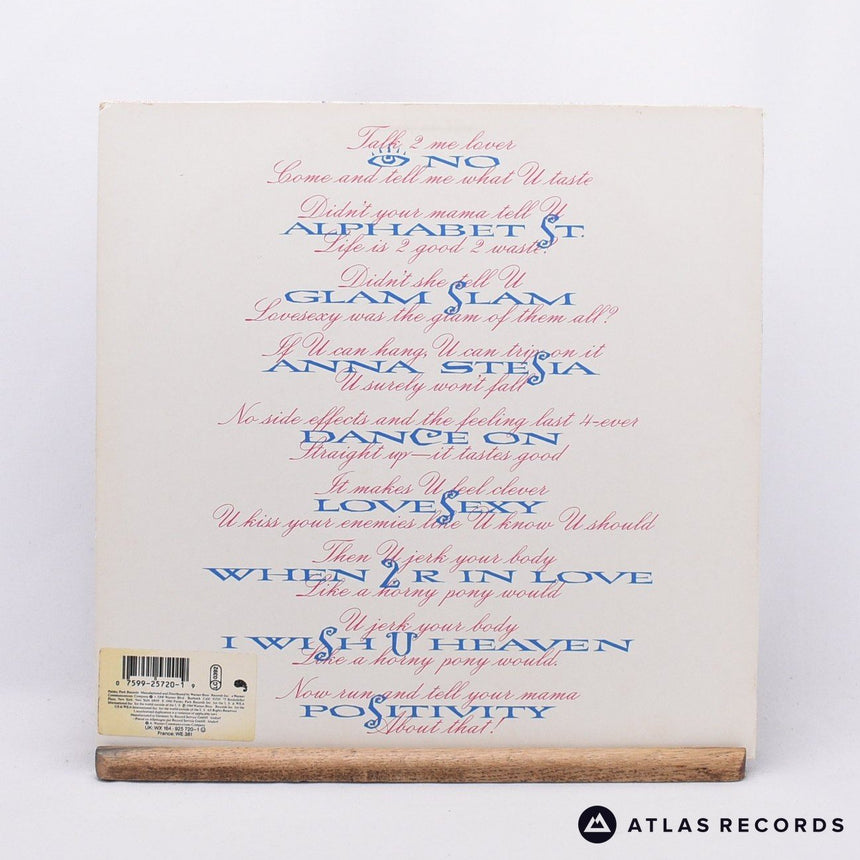 Talk 2 me lover
NO
Come and tell me what U taste
Didn't your mama tell U
ALPHABET ST.
Life is 2 good 2 waste?
Didn't she tell U
GLAM SLAM
Lovesexy was the glam of them all?
If U can hang, U can trip on it
ANNA STESIA
U surely won't fall
No side effects and the feeling last 4-ever
DANCE ON
Straight up—it tastes good
It makes U feel clever
LOVESEXY
U kiss your enemies like U know U should
Then U jerk your body
WHEN 2 R IN LOVE
Like a horny pony would
U jerk your body
I WISH U HEAVEN
Like a horny pony would.
Now run and tell your mama
POSITIVITY
About that!
0 7599-25720-1 9
UK: WX 164 · 925 720-1
France: WE 381
ATLAS RECORDS